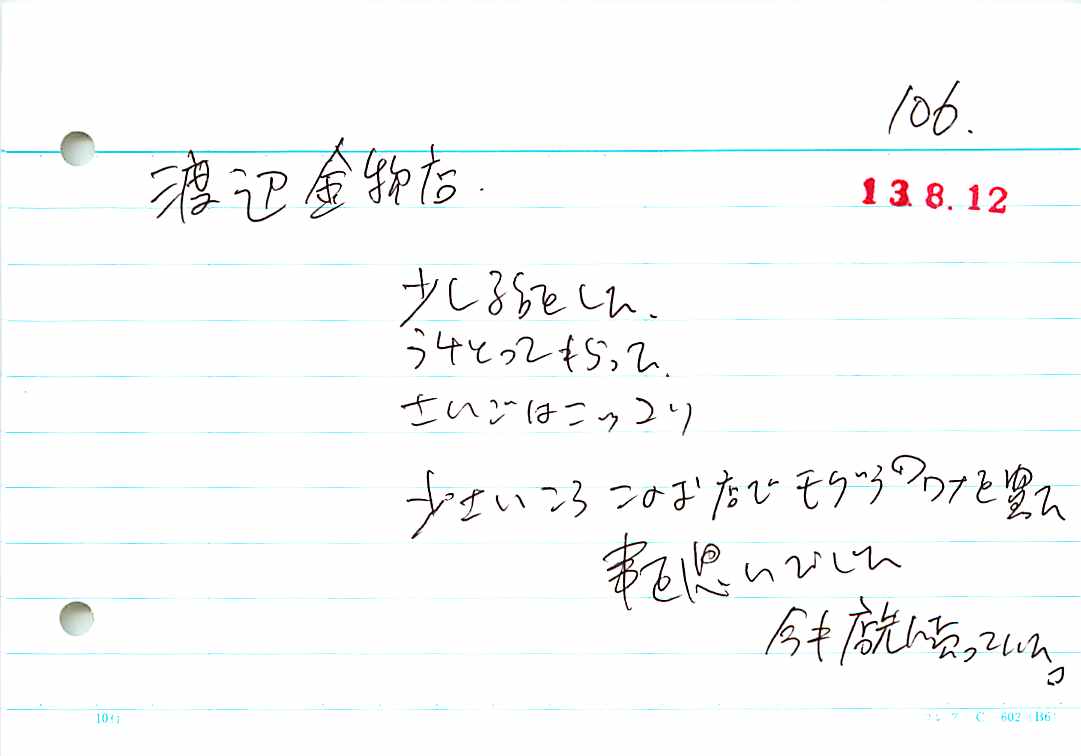 106.
渡辺金物店.
13.8.12
少し話をした.
うけとってもらって.
さいごはこっつり
少さいころ このお店でモグラのワナを買た
事を思いだした
今も店先に売っていた。
10行
C 602 (B6)